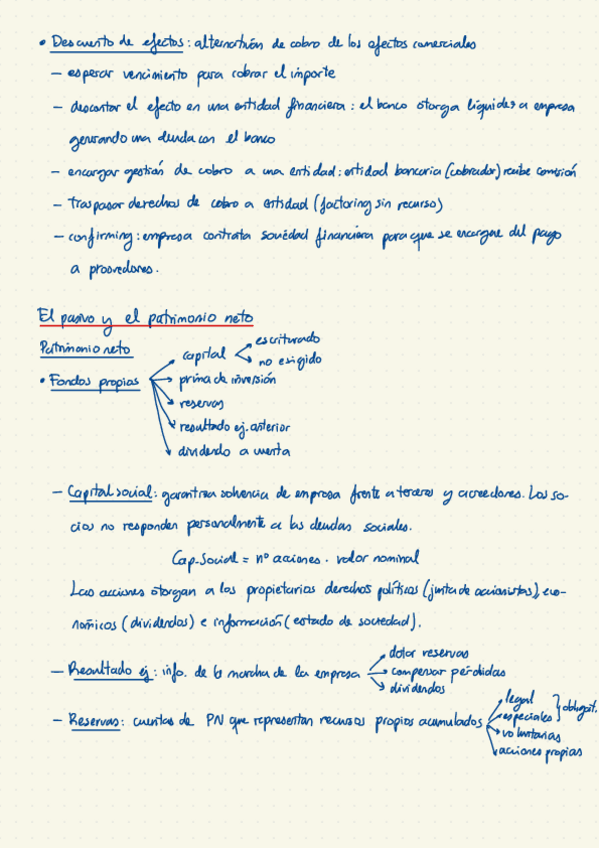 • Descuento de efectos: alternativas de cobro de los efectos comerciales
– esperar vencimiento para cobrar el importe
– descontar el efecto en una entidad financiera: el banco otorga liquidez a empresa
generando una deuda con el banco
– encargar gestión de cobro a una entidad: entidad bancaria (cobrador) recibe comisión
– traspasar derechos de cobro a entidad (factoring sin recurso)
– confirming: empresa contrata sociedad financiera para que se encargue del pago
a proovedores.
El pasivo y el patrimonio neto
Patrimonio neto
• Fondos propios
capital
escriturado
no exigido
prima de inversión
reservas
resultado ej. anterior
dividendo a cuenta
– Capital social: garantiza solvencia de empresa frente a terceros y acreedores. Los so-
cios no responden personalmente a las deudas sociales.
Cap. Social = nº acciones · valor nominal
Las acciones otorgan a los propietarios derechos políticos (junta de accionistas), eco-
nómicos (dividendos) e información (estado de sociedad).
– Resultado ej: info. de la marcha de la empresa
dotar reservas
compensar pérdidas
dividendos
– Reservas: cuentas de PN que representan recursos propios acumulados
legal
especiales
obligat.
voluntarias
acciones propias